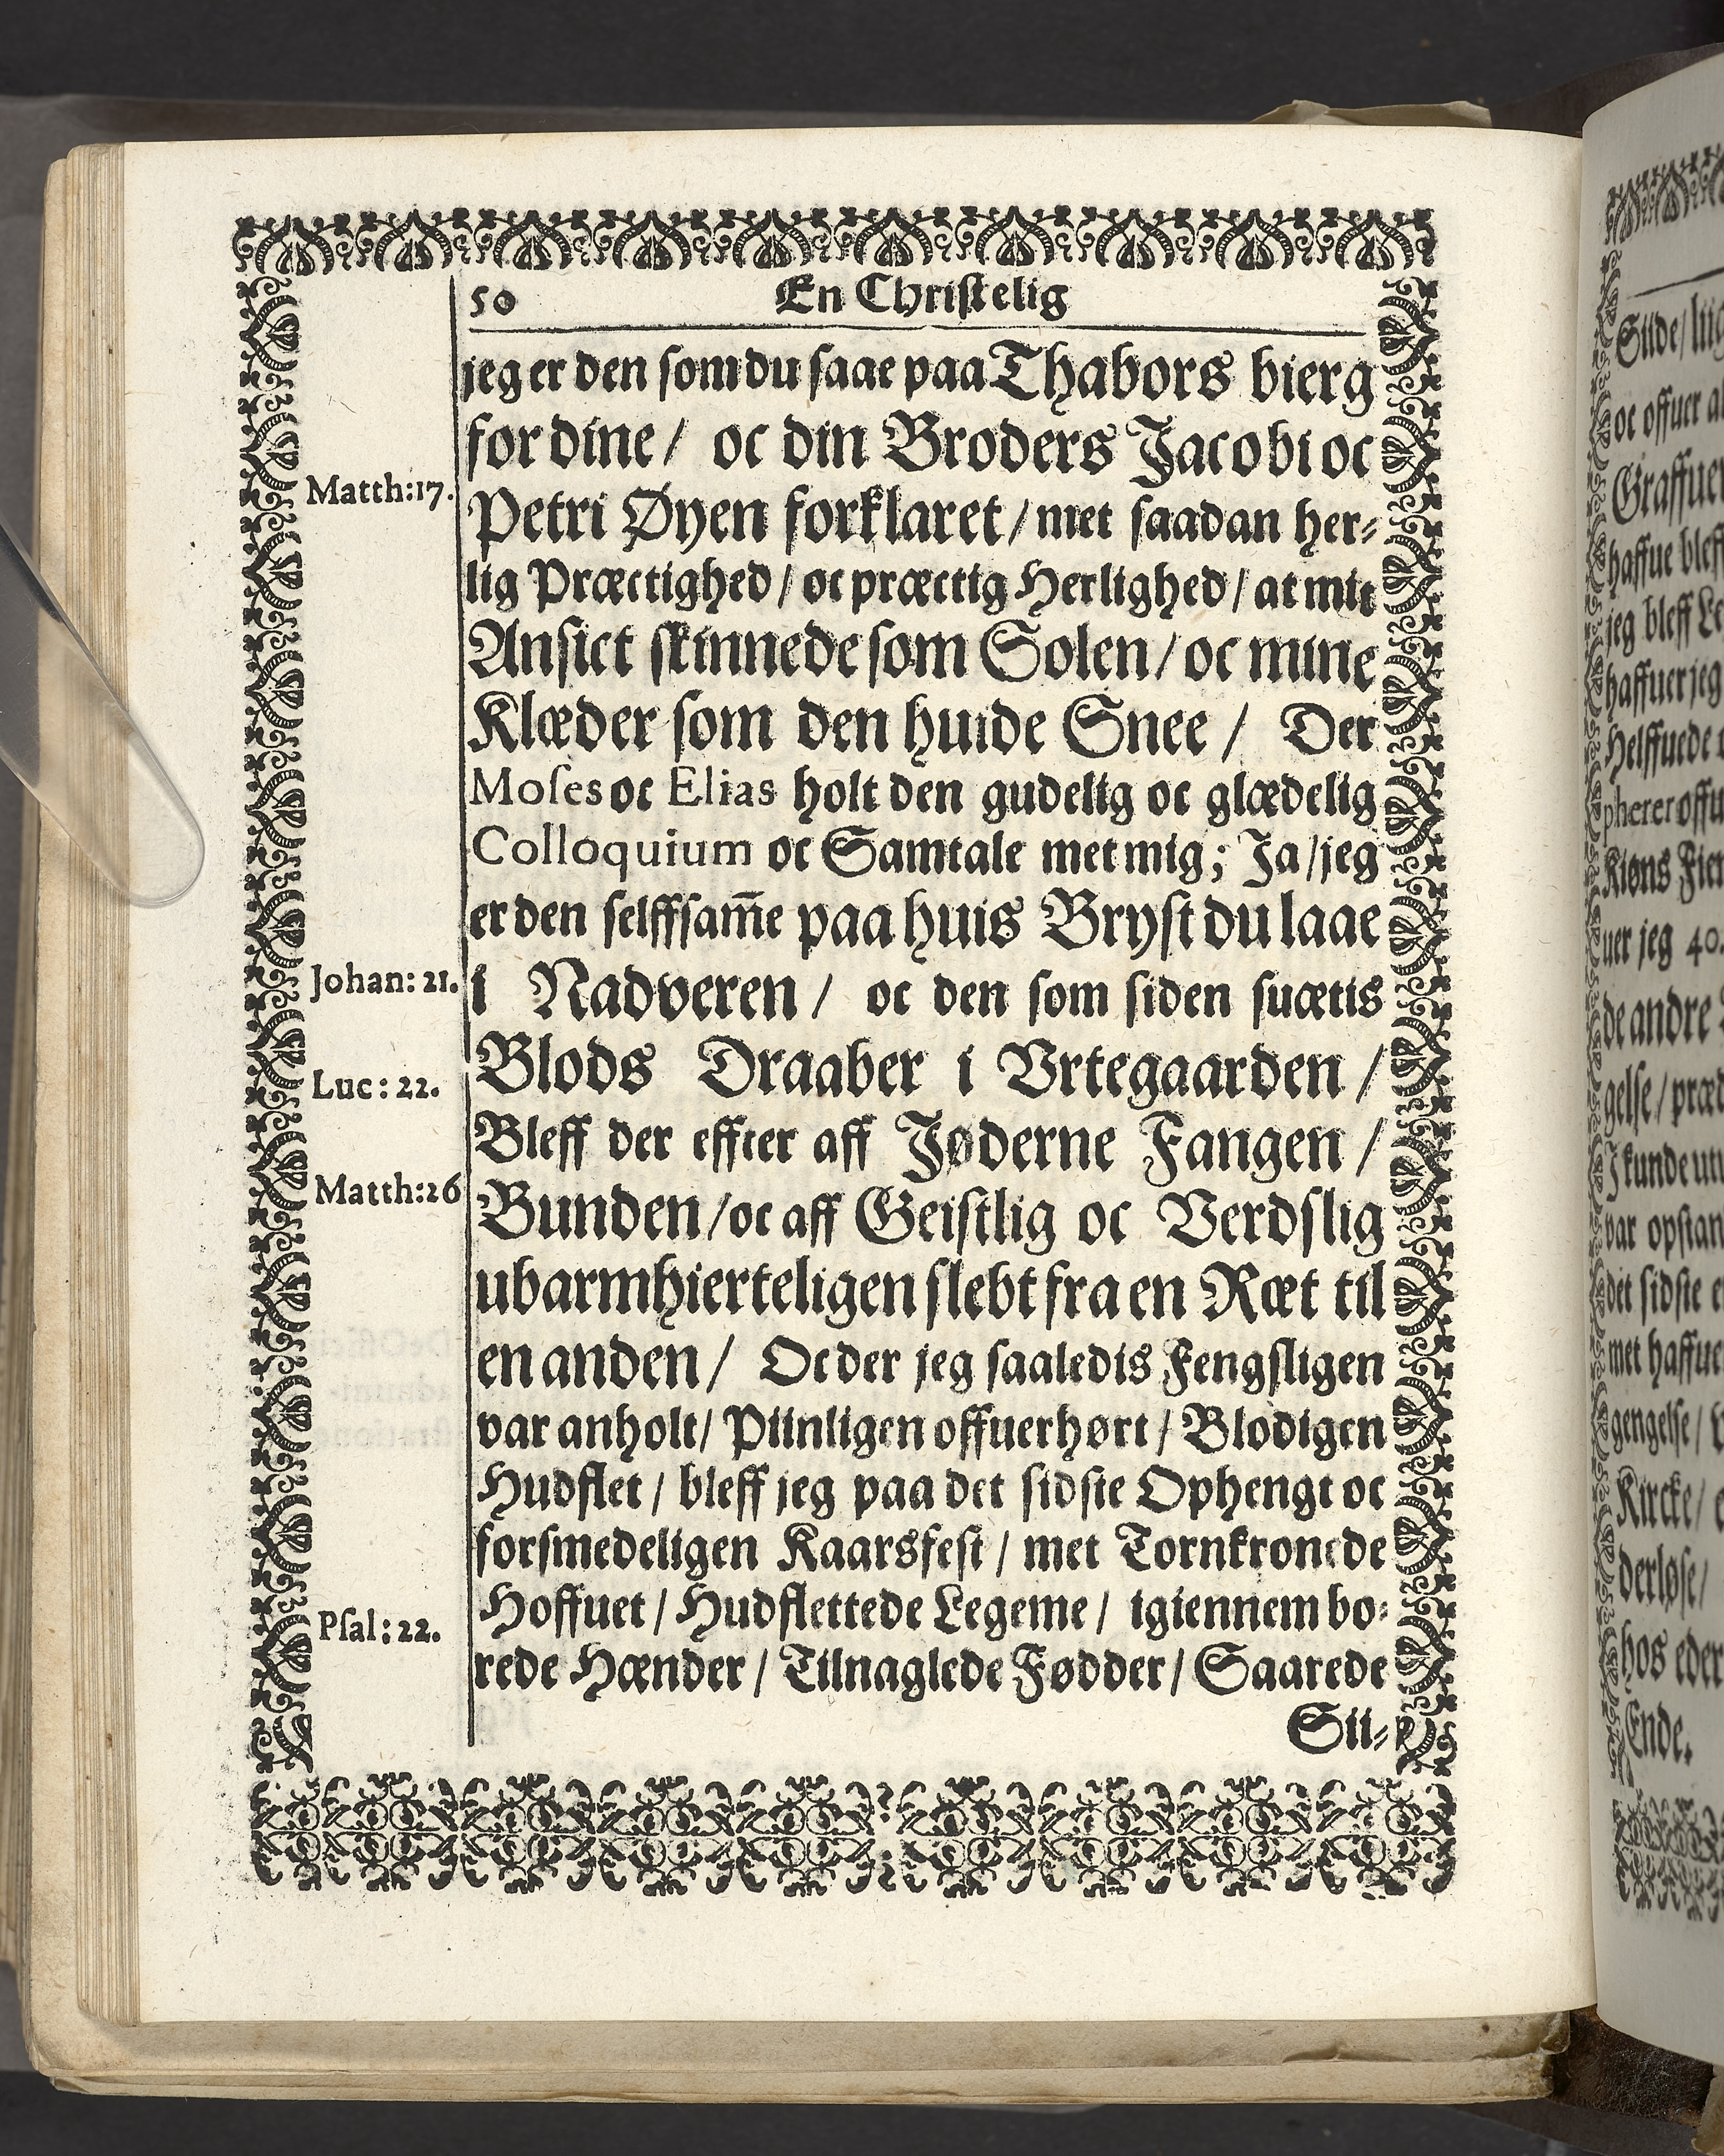 50 En Christelig
jeg er den som du saae paa Thabors bierg
for dine / oc din Broders Jacobi oc
Matth:17.
Petri Øyen forklaret / met saadan her-
lig Præctighed / oc præctig Herlighed / at mit
Ansict skinnede som Solen / oc mine
Klæder som den huide Snee / Der
Moses oc Elias holt den gudelig oc glædelig
Colloquium oc Samtale met mig; Ja / jeg
er den selffsam̄e paa huis Bryst du laae
Johan: 21.
i Nadveren / oc den som siden suætis
Blods Draaber i Vrtegaarden /
Luc: 22.
Bleff der effter aff Jøderne Fangen /
Matth:26
Bunden / oc aff Geistlig oc Verdslig
ubarmhierteligen slebt fra en Ræt til
en anden / Oc der jeg saaledis Fengsligen
var anholt / Piinligen offuerhørt / Blodigen
Hudflet / bleff jeg paa det sidste Ophengt oc
forsmedeligen Kaarsfest / met Tornkronede
Hoffuet / Hudflettede Legeme / igiennem bo-
Psal: 22.
rede Hænder / Tilnaglede Fødder / Saarede
Sii-
Siide /
oc offuer
jeg bleff
haffuer jeg
Helffuede
uer jeg 40.
de andre
gelse / 
var
det sidste
met
gengelse /
Kircke /
derløse /
hos eder
Ende.